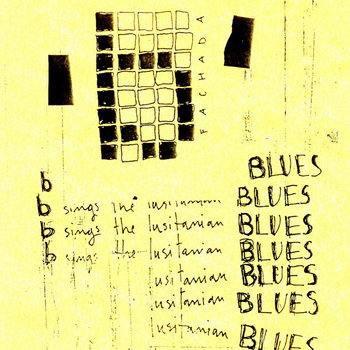 FACHADA
BLUES
b
b sings the lusitanian BLUES
b sings the lusitanian BLUES
b sings the lusitanian BLUES
lusitanian BLUES
lusitanian BLUES
lusitanian BLUES